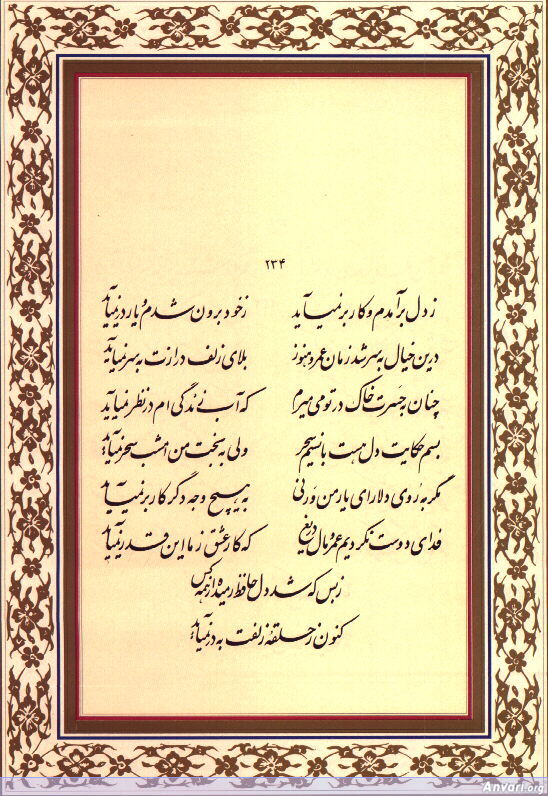 ۲۳۴
ز دل برآمدم و کار بر نمیآید ز خود برون شدم و یار در نمیآید
درین خیال به سر شد زمان عمر و هنوز بلای زلف درازت به سر نمیآید
چنان به حسرت خاک در تو می میرم که آب زندگی ام در نظر نمیآید
بسم حکایت دل هست با نسیم سحر ولی به بخت من امشب سحر نمیآید
مگر به روی دلارای یار من ورنی به هیچ وجه دگر کار بر نمیآید
فدای دوست نکردیم عمر و مال دریغ که کار عشق ز ما این قدر نمیآید
ز بس که شد دل حافظ رمیده از همه کس
کنون ز حلقه زلفت به در نمیآید
Anvari.org